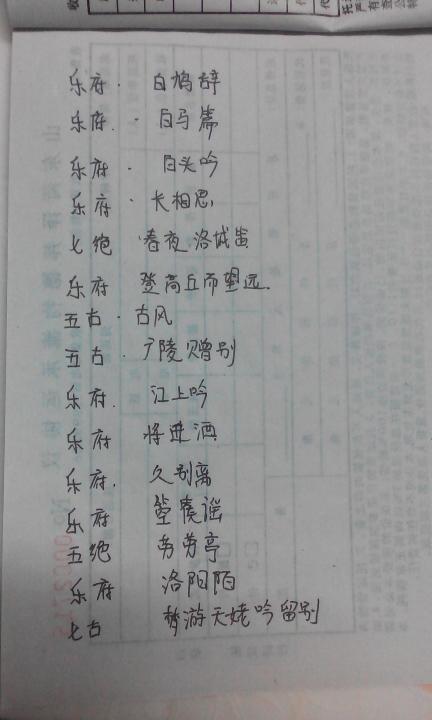 乐府·白鸠辞
乐府·白马篇
乐府·白头吟
乐府·长相思
七绝·春夜洛城
乐府 登高丘而望远
五古·古风
五古·广陵赠别
乐府·江上吟
乐府 将进酒
乐府·久别离
乐府 箜篌谣
五绝 劳劳亭
乐府 洛阳陌
七古 梦游天姥吟留别